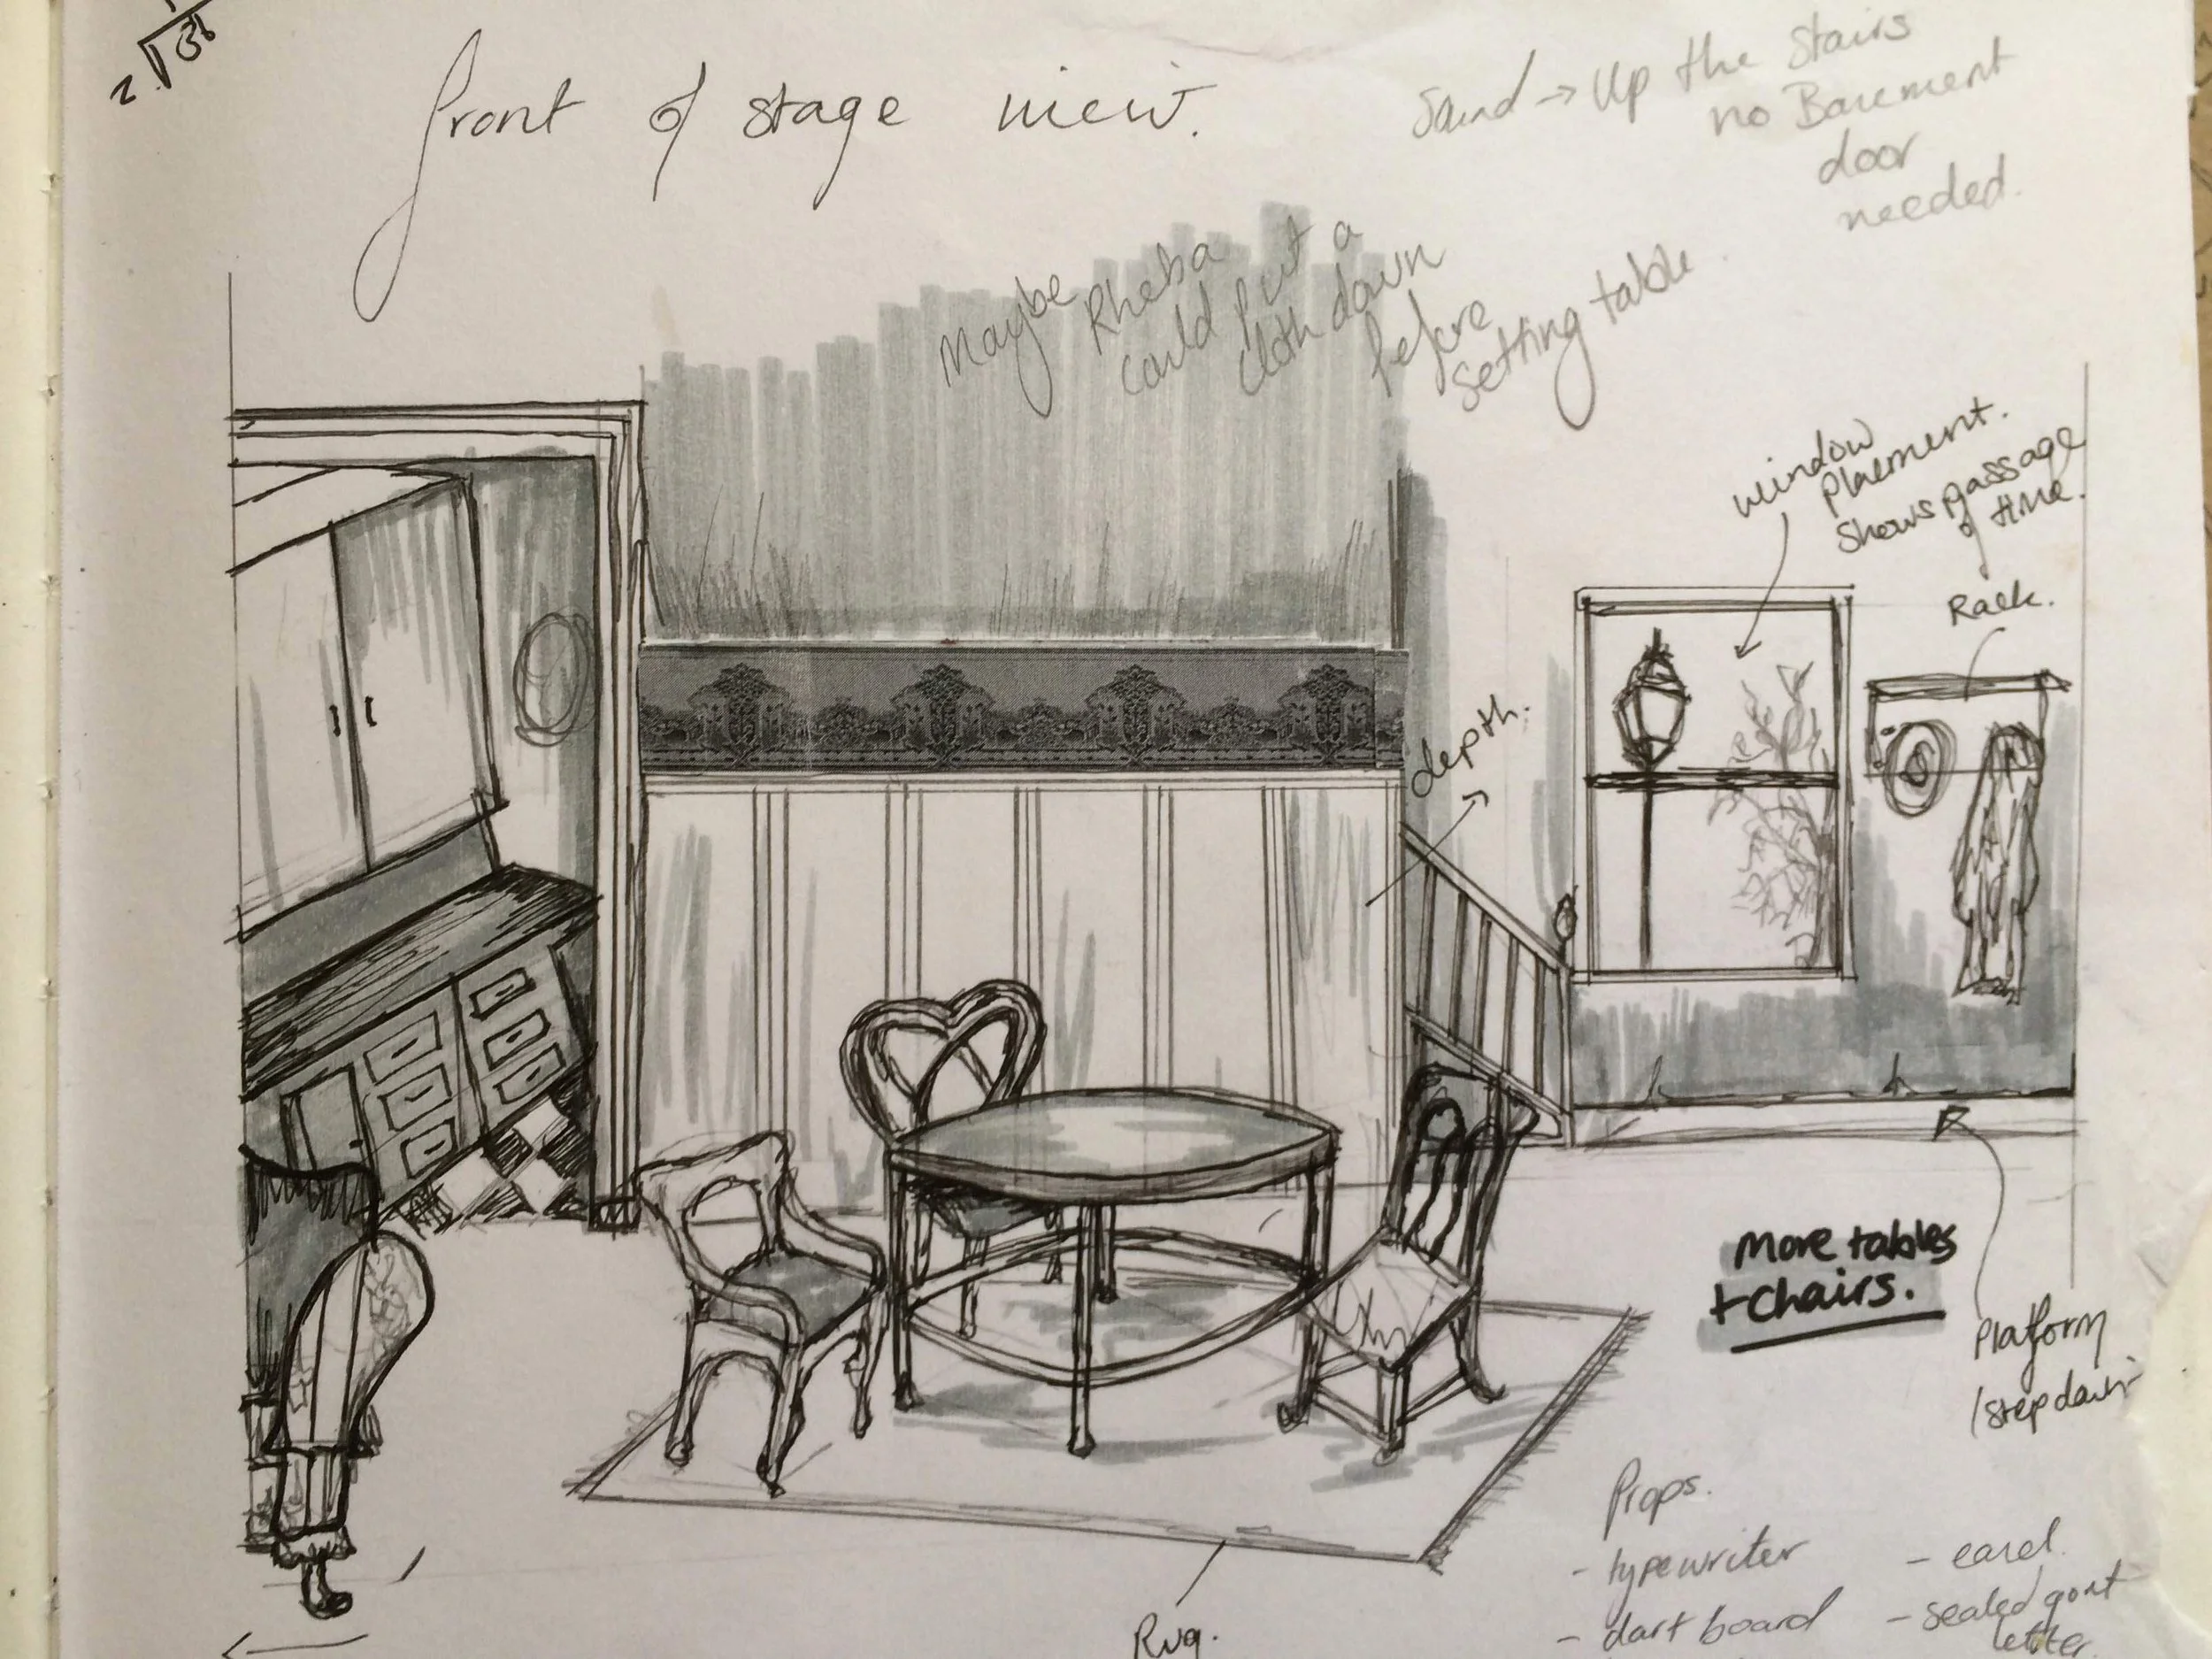 front of stage view.
Sound → Up the Stairs
no Basement
door
needed.
Maybe Rheba
could put a
cloth down
before
setting table.
window
placement.
Shows passage
of time.
Rack.
depth.
More tables
+ chairs.
Platform
/step down
Props.
- typewriter
- dart board
- easel.
- sealed govt
letter
Rug.